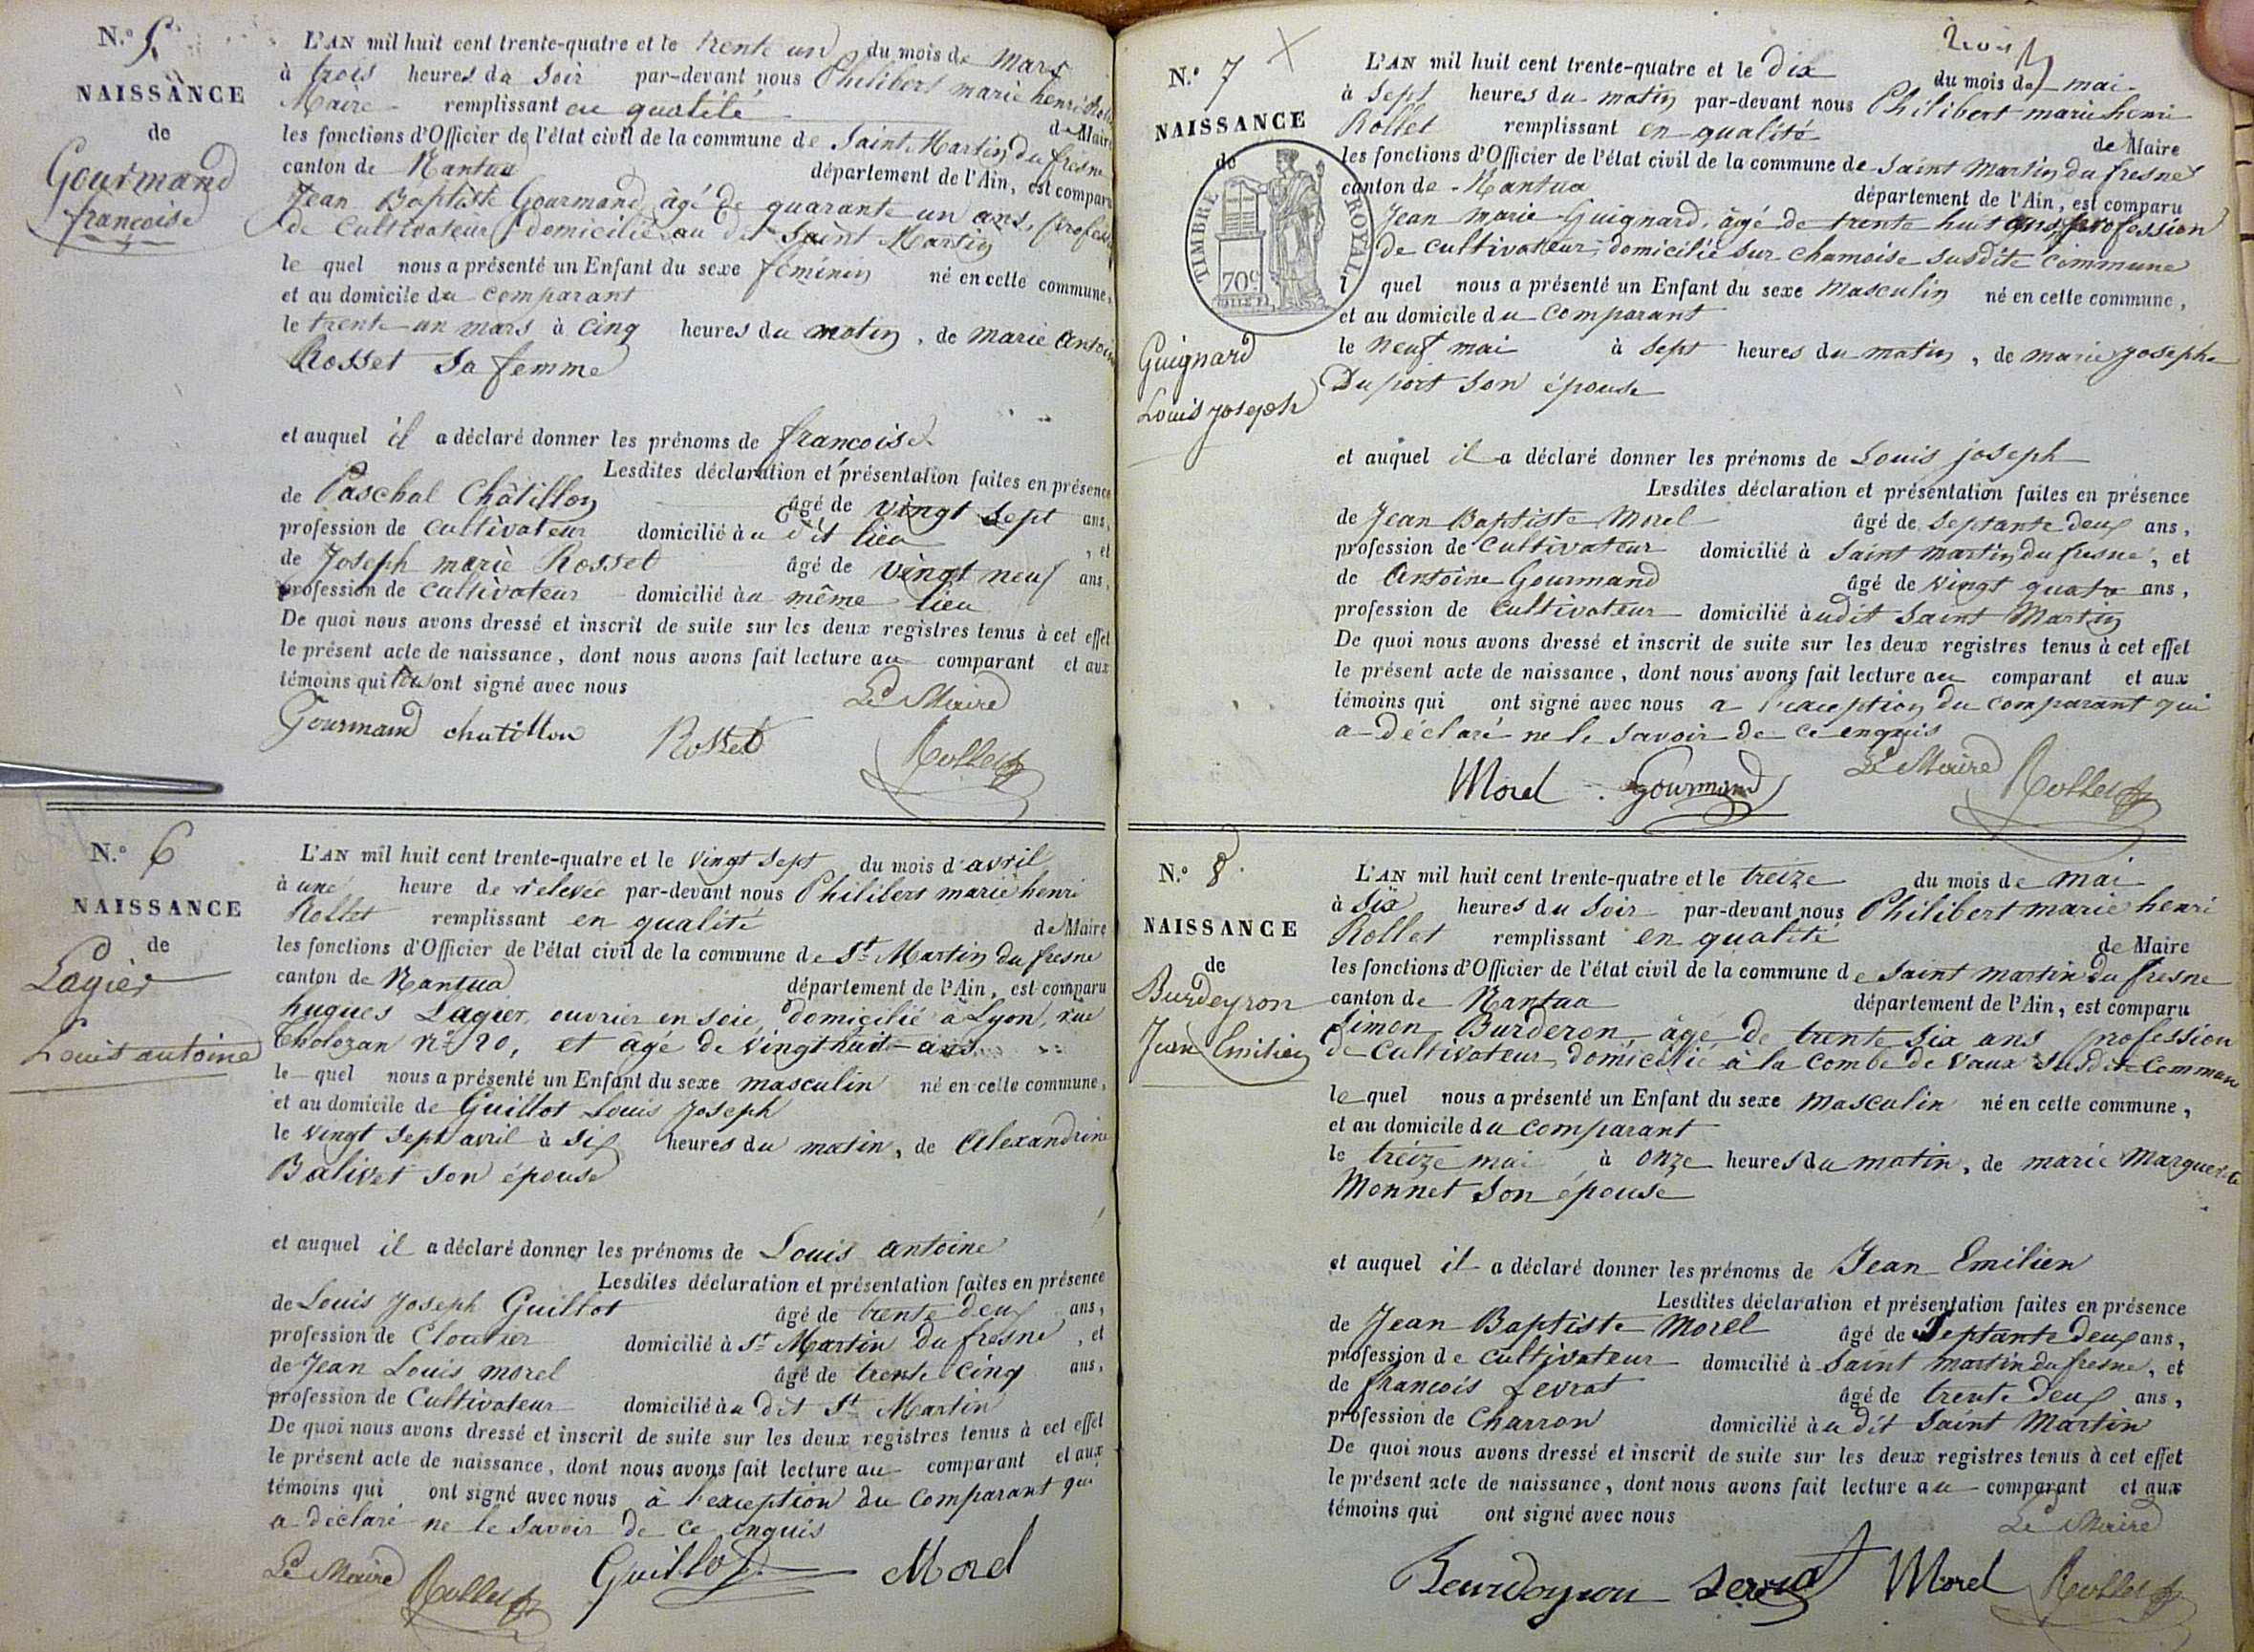 N.° 5
NAISSANCE
de
Gourmand
françoise
L'AN mil huit cent trente-quatre et le trente un du mois de mars
à trois heures du soir par-devant nous Philibert marie henri
Maire remplissant en qualité de Maire
les fonctions d'Officier de l'état civil de la commune de Saint Martin du fresne
canton de Nantua département de l'Ain, est comparu
Jean Baptiste Gourmand âgé de quarante un ans,
de cultivateur domicilié au dit Saint Martin
le quel nous a présenté un Enfant du sexe féminin né en cette commune,
et au domicile du comparant
le trente un mars à cinq heures du matin, de marie
Rosset sa femme
et auquel il a déclaré donner les prénoms de francoise
Lesdites déclaration et présentation faites en présence
de Paschal Châtillon âgé de vingt sept ans,
profession de cultivateur domicilié au dit lieu , et
de Joseph marie Rosset âgé de vingt neuf ans,
profession de cultivateur domicilié au même lieu
De quoi nous avons dressé et inscrit de suite sur les deux registres tenus à cet effet
le présent acte de naissance, dont nous avons fait lecture au comparant et aux
témoins qui tous ont signé avec nous
Le Maire
Gourmand chatillon Rosset Rollet
N.° 6
NAISSANCE
de
Lagier
Louis antoine
L'AN mil huit cent trente-quatre et le vingt sept du mois d'avril
à une heure de relevée par-devant nous Philibert marie henri
Rollet remplissant en qualité de Maire
les fonctions d'Officier de l'état civil de la commune de St Martin du fresne
canton de Nantua département de l'Ain, est comparu
hugues Lagier, ouvrier en soie, domicilié à Lyon, rue
Tholozan n° 20, et âgé de vingt huit ans
le quel nous a présenté un Enfant du sexe masculin né en cette commune,
et au domicile de Guillot Louis Joseph
le vingt sept avril à six heures du matin, de Alexandrine
Balivet son épouse
et auquel il a déclaré donner les prénoms de Louis antoine
Lesdites déclaration et présentation faites en présence
de Louis Joseph Guillot âgé de trente deux ans,
profession de Cloutier domicilié à St Martin du fresne , et
de Jean Louis morel âgé de trente cinq ans,
profession de Cultivateur domicilié au dit St Martin
De quoi nous avons dressé et inscrit de suite sur les deux registres tenus à cet effet
le présent acte de naissance, dont nous avons fait lecture au comparant et aux
témoins qui ont signé avec nous à l'exception du comparant qui
a déclaré ne le savoir de ce enquis
Le Maire Rollet Guillot Morel
N.° 7
NAISSANCE
de
TIMBRE ROYAL
70c
Guignard
Louis joseph
L'AN mil huit cent trente-quatre et le dix du mois de mai
à sept heures du matin par-devant nous Philibert marie henri
Rollet remplissant en qualité de Maire
les fonctions d'Officier de l'état civil de la commune de Saint Martin du fresne
canton de Nantua département de l'Ain, est comparu
Jean marie Guignard, âgé de trente huit ans, profession
de cultivateur, domicilié sur chamoise susdite commune
l quel nous a présenté un Enfant du sexe Masculin né en cette commune,
et au domicile du comparant
le neuf mai à sept heures du matin, de marie josephe
Duport son épouse
et auquel il a déclaré donner les prénoms de Louis joseph
Lesdites déclaration et présentation faites en présence
de Jean Baptiste Morel âgé de septante deux ans,
profession de cultivateur domicilié à Saint martin du fresne, et
de Antoine Gourmand âgé de vingt quatre ans,
profession de cultivateur domicilié audit Saint Martin
De quoi nous avons dressé et inscrit de suite sur les deux registres tenus à cet effet
le présent acte de naissance, dont nous avons fait lecture au comparant et aux
témoins qui ont signé avec nous a l'exception du comparant qui
a déclaré ne le savoir de ce enquis
Morel Gourmand Le Maire Rollet
N.° 8
NAISSANCE
de
Burdeyron
Jean Emilien
L'AN mil huit cent trente-quatre et le treize du mois de mai
à six heures du soir par-devant nous Philibert marie henri
Rollet remplissant en qualité de Maire
les fonctions d'Officier de l'état civil de la commune de Saint martin du fresne
canton de Nantua département de l'Ain, est comparu
Simon Burderon âgé de trente six ans profession
de cultivateur domicilié à la Combe de Vaux susdite commune
le quel nous a présenté un Enfant du sexe masculin né en cette commune,
et au domicile du comparant
le treize mai à onze heures du matin, de marie Marguerite
Monnet son épouse
et auquel il a déclaré donner les prénoms de Jean Emilien
Lesdites déclaration et présentation faites en présence
de Jean Baptiste Morel âgé de Septante deux ans,
profession de cultivateur domicilié à Saint martin du fresne, et
de françois Levrat âgé de trente deux ans,
profession de Charron domicilié audit Saint Martin
De quoi nous avons dressé et inscrit de suite sur les deux registres tenus à cet effet
le présent acte de naissance, dont nous avons fait lecture au comparant et aux
témoins qui ont signé avec nous
Le Maire
Morel Rollet